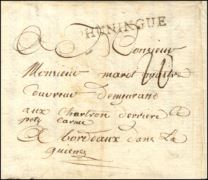 HENINGUE
A Monsieur
Monsieur maret
Couvreur demeurand
aux Chartron derriere le
petit Carme
A bordeaux dans La
guienne